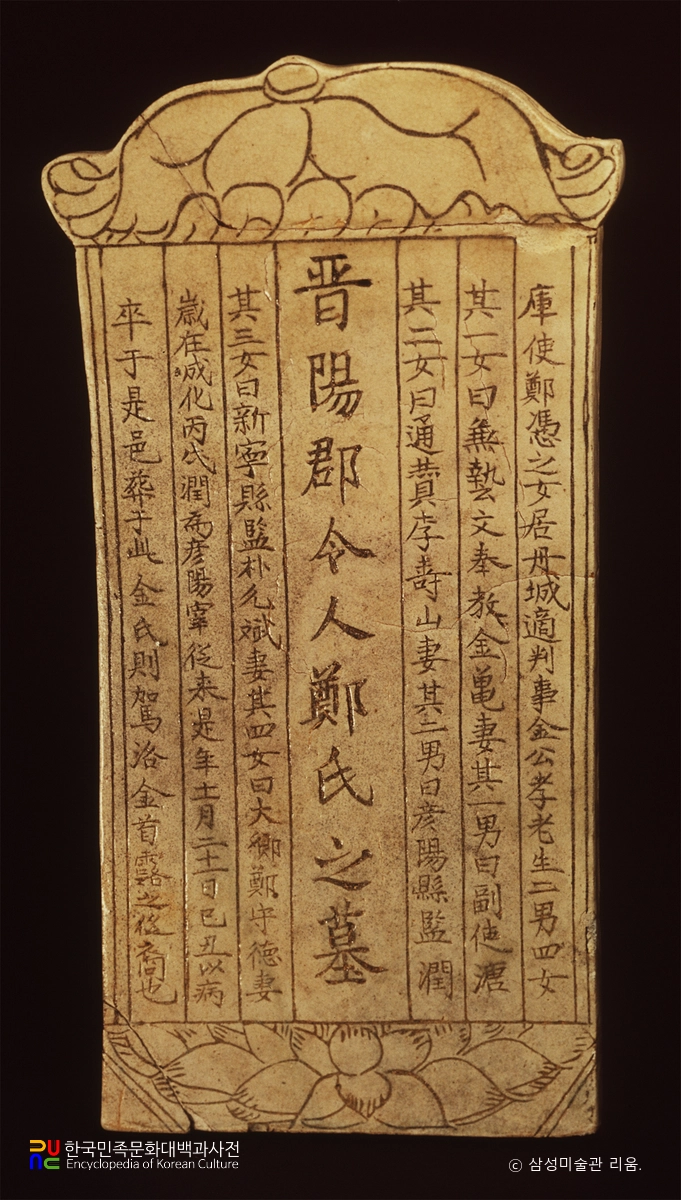 庫使鄭憑之女居丹城適判事金公孝老生二男四女
其一女曰無藝文奉教金亀妻其一男曰副使
其二女曰通賛李壽山妻其二男曰彦陽縣監潤
晋陽郡令人鄭氏之墓
其三女曰新寧縣監朴允斌妻其四女曰大卿鄭守德妻
歳在成化丙戌潤為彦陽宰從来是年十一月二十一日己丑以病
卒于是邑葬于此金氏則駕洛金首露之後裔也
한국민족문화대백과사전
Encyclopedia of Korean Culture
© 삼성미술관 리움.